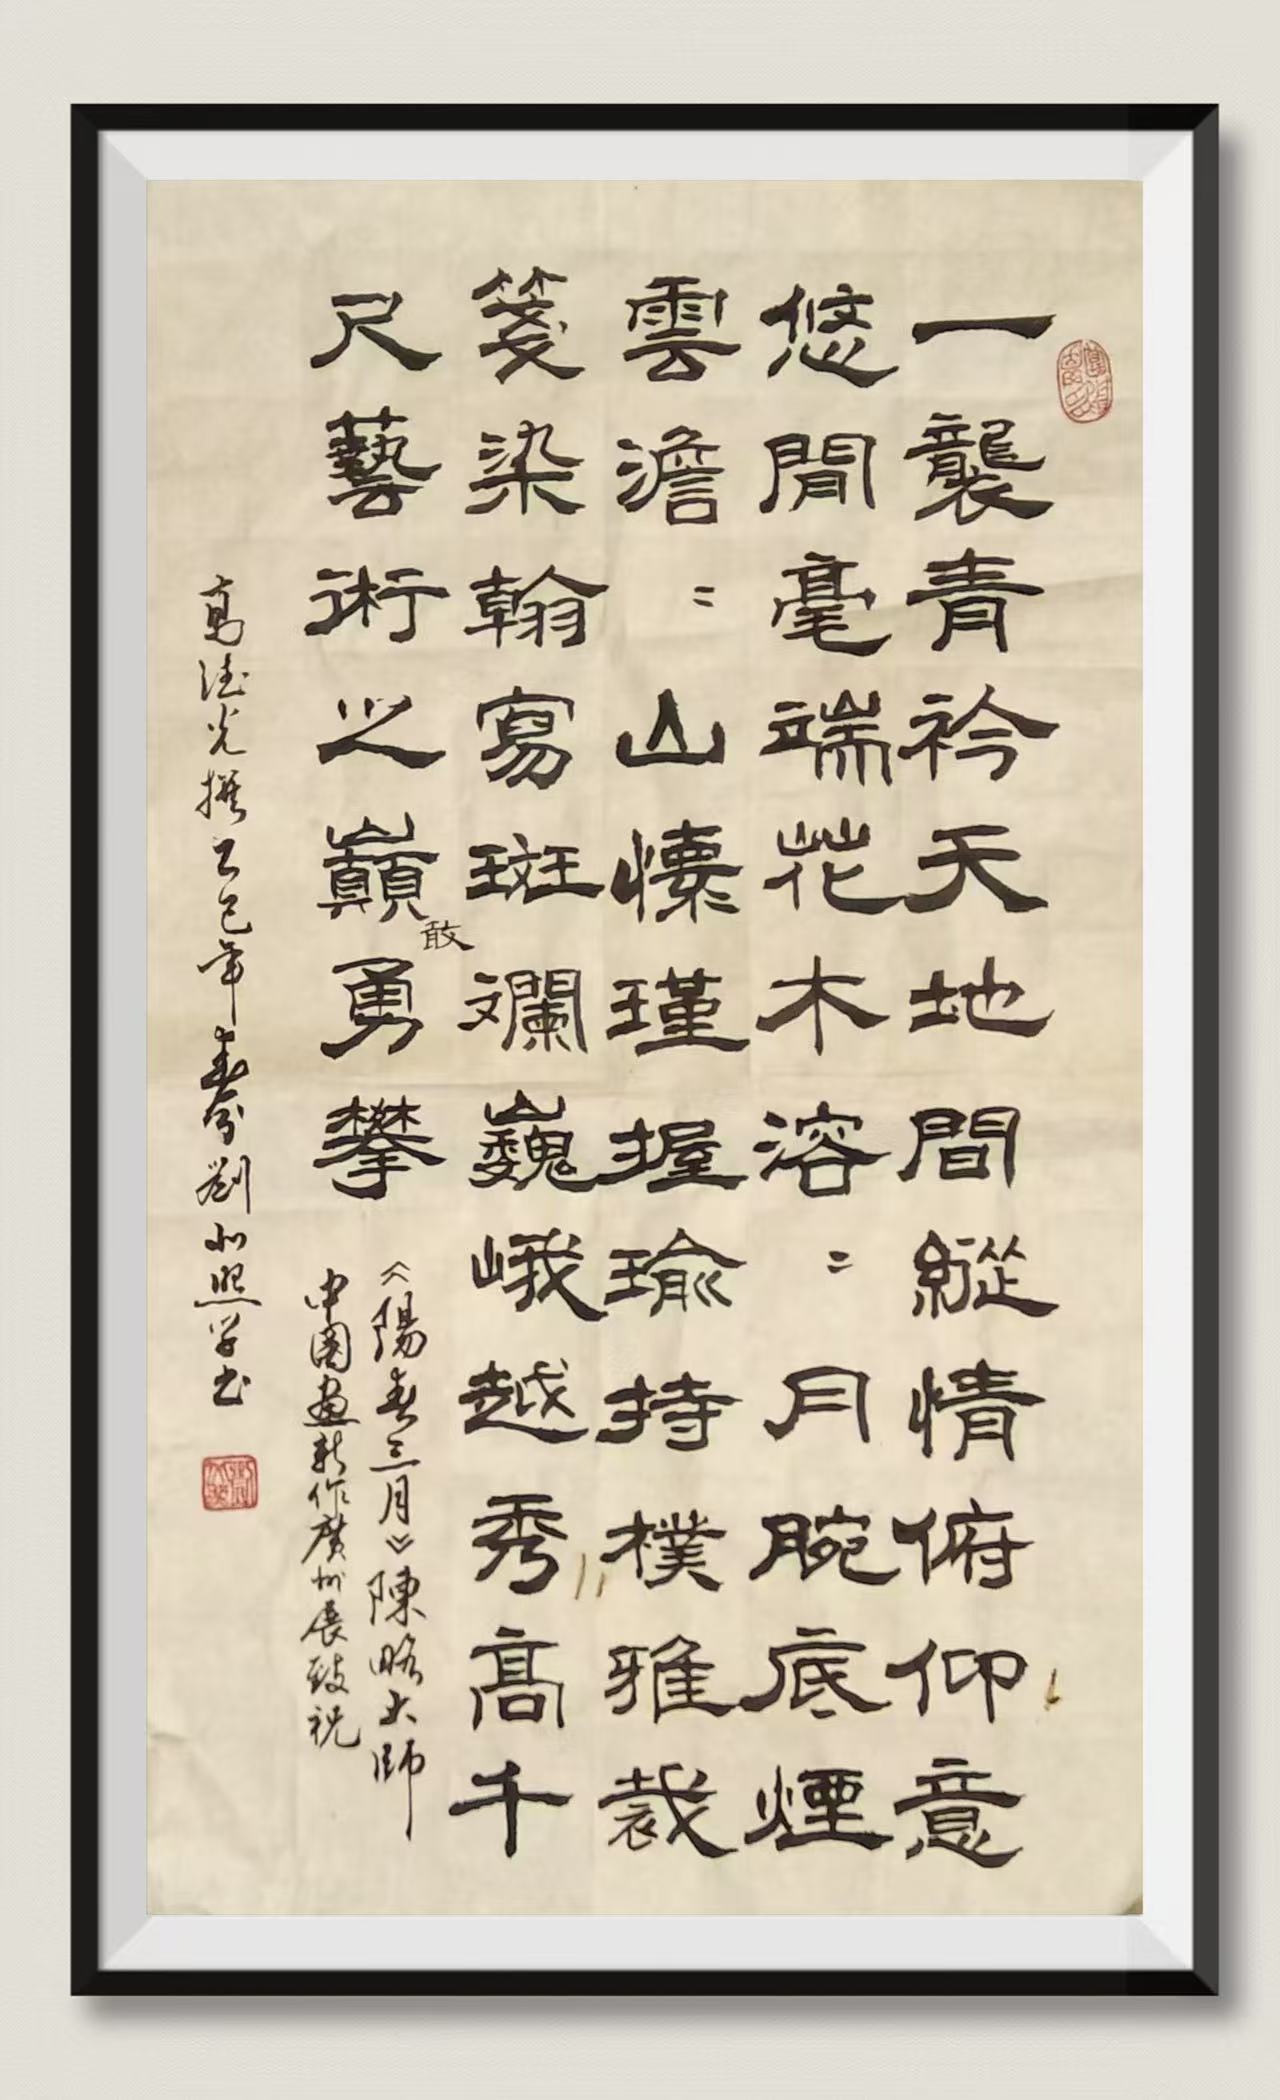 一襲青衿天地間縱情俯仰意
悠閒毫端花木溶〻月腕底煙
雲澹〻山懷瑾握瑜持樸雅裁
箋染翰寫斑斕巍峨越秀高千
尺藝術之巔敢勇攀
《陽春三月》陳略大師
中國畫新作廣州展致祝
高德光撰乙巳年春分劉
照学书